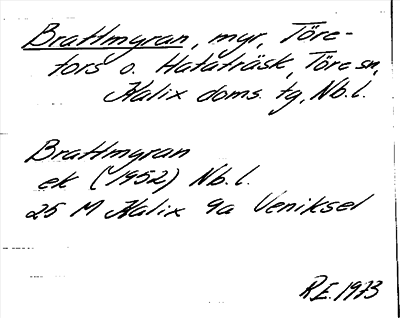 Brattmyran, myr, Töre-
fors o. Hataträsk, Töre sn,
Kalix doms. tg, Nb.l.
Brattmyran
ek (1952) Nb.l.
25 M Kalix 9a Veniksel
R.E. 1973